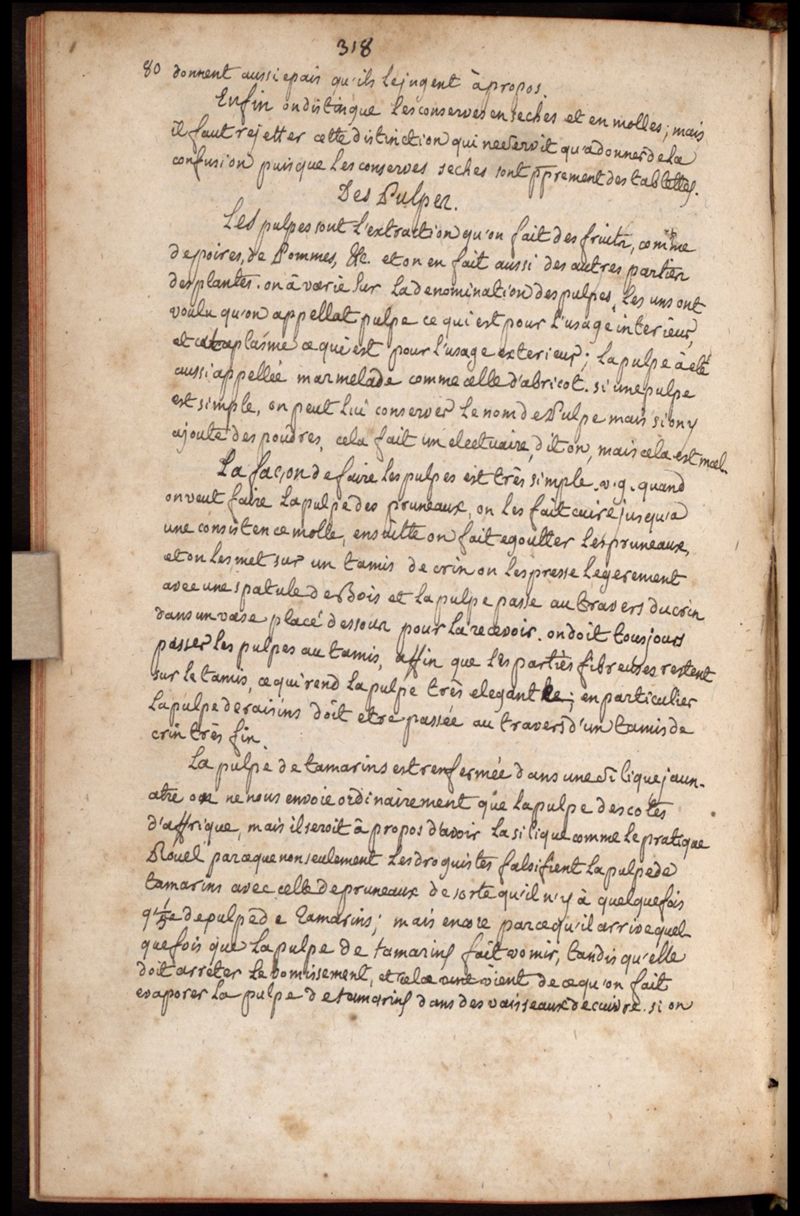 318
80 donnent aussi epais qu'ils le jugent à propos.
Enfin on distingue les conserves en seches et en molles; mais
il faut rejetter cette distinction qui ne serviroit qu'a donner de la
confusion puisque les conserves seches sont pprement des tablettes.
Des Pulpes.
Les pulpes sont l'extraction qu'on fait des fruits, comme
de poires, de Pommes, &c. et on en fait aussi des autres parties
des plantes. on à varié sur la denomination des pulpes, les uns ont
voulu qu'on appellat pulpe ce qui est pour l'usage interieur,
et cataplasme ce qui est pour l'usage exterieur; la pulpe à eté
aussi appellée marmelade comme celle d'abricot. si une pulpe
est simple, on peut lui conserver le nom de Pulpe mais si on y
ajoute des poudres, cela fait un electuaire, dit on, mais cela est mal.
La façon de faire les pulpes est très simple. v.g. quand
on veut faire la pulpe des pruneaux, on les fait cuire jusqu'a
une consistence molle, ensuitte on fait egoutter les pruneaux,
et on les met sur un tamis de crin on les presse legerement
avec une spatule de Bois et la pulpe passe au travers du crin
dans un vase placé dessous pour la recevoir. on doit tousjours
passer les pulpes au tamis, affin que les parties fibreuses restent
sur le tamis, ce qui rend la pulpe très elegante; en particulier
la pulpe de raisins doit etre passée au travers d'un tamis de
crin très fin.
La pulpe de tamarins est renfermée dans une silique jaun-
atre on ne nous envoie ordinairement que la pulpe des cotes
d'affrique, mais il seroit à propos d'avoir la silique comme le pratique
Rouel parceque non seulement les droguistes falsifient la pulpe de
tamarins avec celle de pruneaux de sorte qu'il n'y à quelquefois
de pulpe de Tamarins; mais encore parcequ'il arrive quel-
quefois que la pulpe de tamarins fait vomir, tandis qu'elle
doit arrêter le vomissement, et cela vient de ce qu'on fait
evaporer la pulpe de tamarins dans des vaisseaux de cuivre. si on